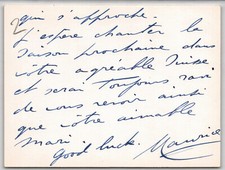 qui s'approche.
J'espère chanter la
saison prochaine dans
vôtre agréable Suisse
et serai toujours ravi
de vous revoir ainsi
que vôtre aimable
mari. Good luck. Maurice